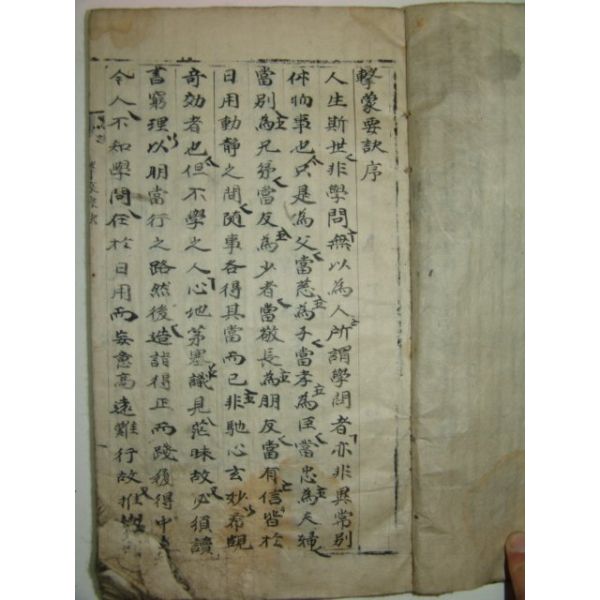 擊蒙要訣序
人生斯世非學問無以為人所謂學問者亦非異常別
件物事也只是為父當慈為子當孝為臣當忠為夫婦
當別為兄弟當友為少者當敬長為朋友當有信皆於
日用動靜之間隨事各得其當而已非馳心玄妙希覬
奇効者也但不學之人心地茅塞識見茫昧故必須讀
書窮理以明當行之路然後造詣得正而踐履得中
今人不知學問在於日用而妄意高遠難行故推